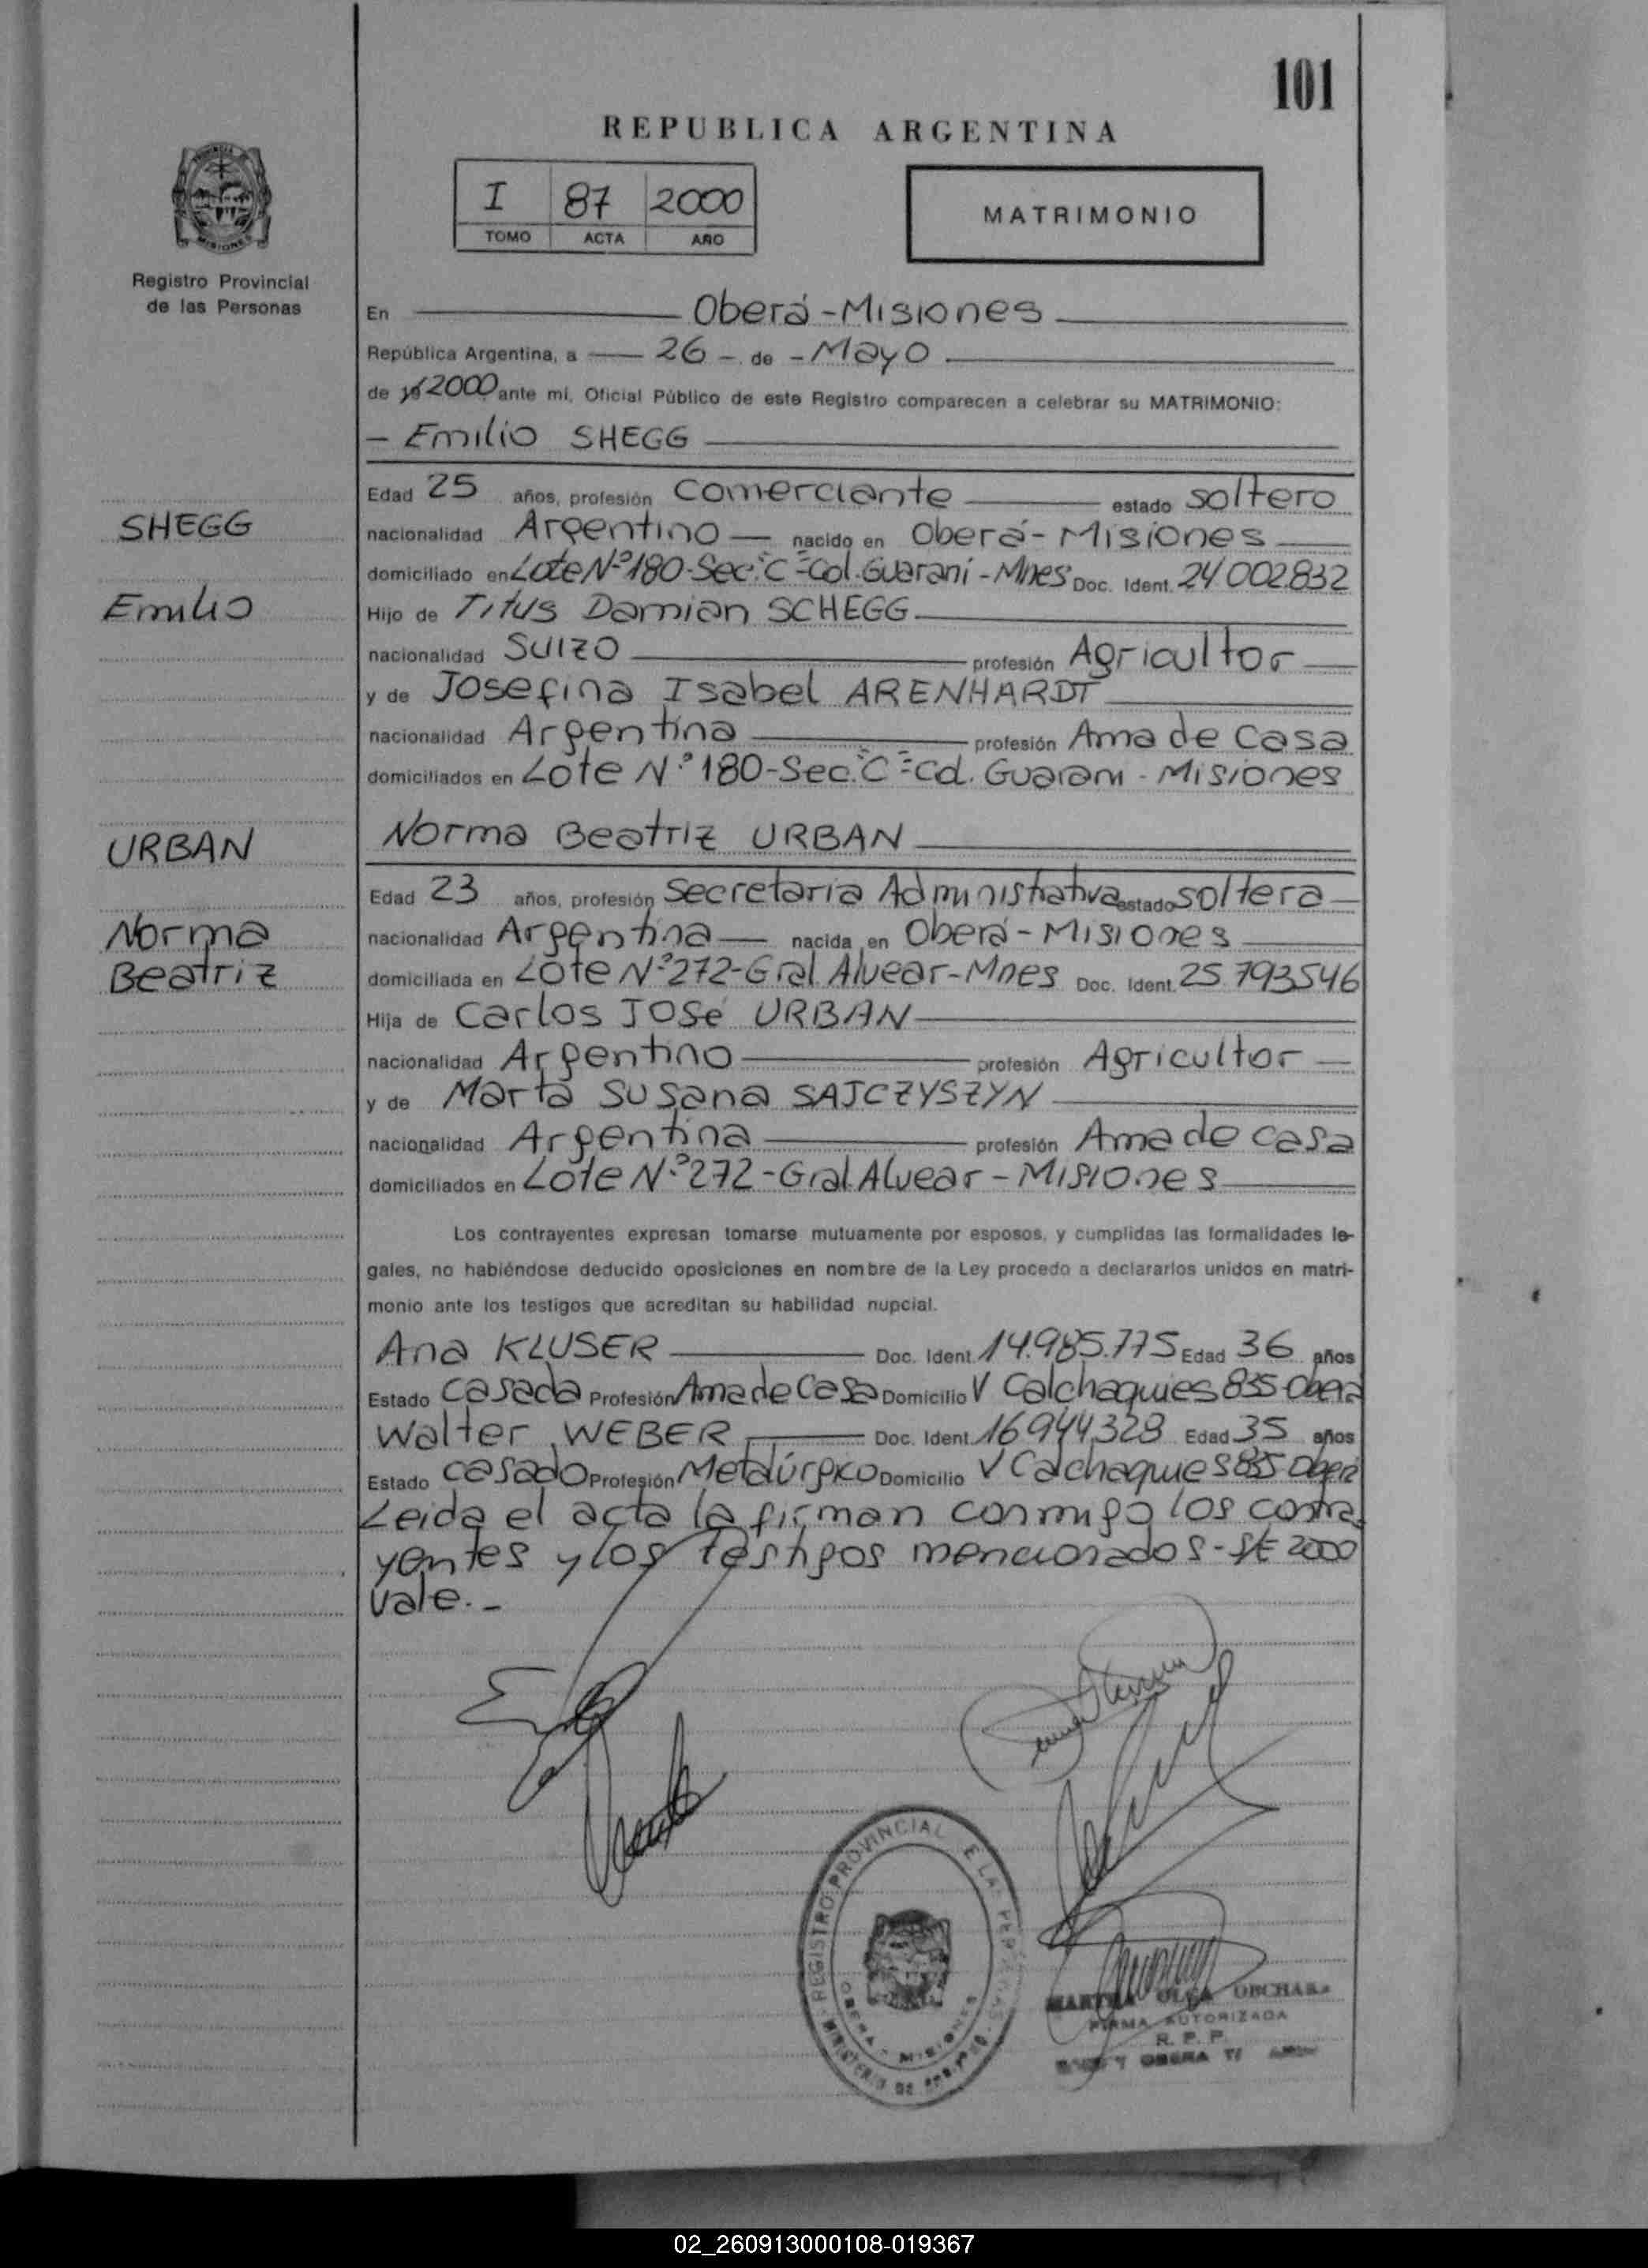 101
REPUBLICA ARGENTINA
I 87 2000
TOMO ACTA AÑO
MATRIMONIO
PROVINCIA
MISIONES
Registro Provincial
de las Personas
En Oberá - Misiones
República Argentina, a 26 - de - Mayo
de 19 2000 ante mí, Oficial Público de este Registro comparecen a celebrar su MATRIMONIO:
- Emilio SHEGG
Edad 25 años, profesión Comerciante estado soltero
SHEGG
nacionalidad Argentino nacido en Oberá - Misiones
domiciliado en Lote Nº 180 - Sec. "C" - Col. Guaraní - Mnes Doc. Ident. 24.002.832
Emilio
Hijo de Titus Damian SCHEGG
nacionalidad Suizo profesión Agricultor
y de Josefina Isabel ARENHARDT
nacionalidad Argentina profesión Ama de Casa
domiciliados en Lote Nº 180 - Sec. "C" - Col. Guarani - Misiones
URBAN
Norma Beatriz URBAN
Edad 23 años, profesión Secretaria Administrativa estado soltera
Norma
Beatriz
nacionalidad Argentina nacida en Oberá - Misiones
domiciliada en Lote Nº 272 - Gral. Alvear - Mnes Doc. Ident. 25.793.546
Hija de Carlos José URBAN
nacionalidad Argentino profesión Agricultor
y de Marta Susana SAJCZYSZYN
nacionalidad Argentina profesión Ama de casa
domiciliados en Lote Nº 272 - Gral. Alvear - Misiones
Los contrayentes expresan tomarse mutuamente por esposos, y cumplidas las formalidades le-
gales, no habiéndose deducido oposiciones en nombre de la Ley procedo a declararlos unidos en matri-
monio ante los testigos que acreditan su habilidad nupcial.
Ana KLUSER Doc. Ident. 14.985.775 Edad 36 años
Estado casada Profesión Ama de Casa Domicilio V Calchaquies 835 Oberá
Walter WEBER Doc. Ident. 16.944.328 Edad 35 años
Estado casado Profesión Metalúrgico Domicilio V Calchaquies 835 Oberá
Leida el acta la firman conmigo los contra
yentes y los testigos mencionados - S/E 2000
Vale. -
REGISTRO PROVINCIAL DE LAS PERSONAS
OBERA - MISIONES
MINISTERIO DE
MARTHA OLGA
FIRMA AUTORIZADA
R. P. P.
OBERA
02_260913000108-019367